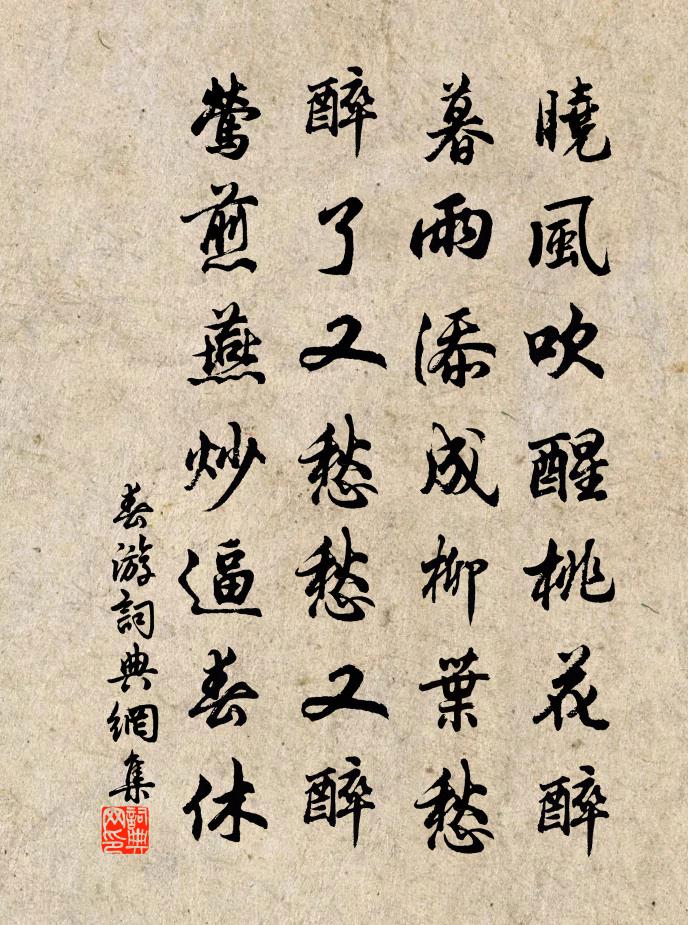 曉風吹醒桃花醉
暮雨添成柳葉愁
醉了又愁愁又醉
鶯煎燕炒逼春休
春游詞典網集
詞典
網印